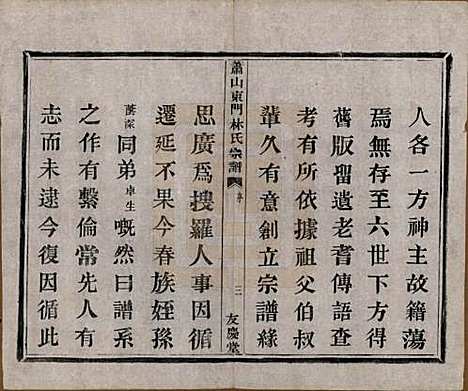 人各一方神主故籍蕩
焉無存至六世下方得
舊版瑠遺老耆傳語查
考有所依據祖父伯叔
輩久有意創立宗譜緣
蕭山東門林氏宗譜 序 三 友慶堂
思廣爲搜羅人事因循
遷延不果今春族姪孫
蔭南同弟卓生慨然曰譜系
之作有繫倫常先人有
志而未逮今復因循此